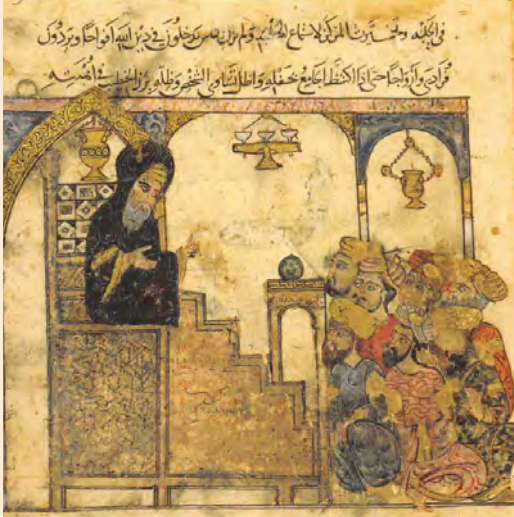 في الحلبه وتخيرت المركز لاستماع الخطبه ولم يزل الناس يدخلون في دين الله افواجا ويردون
فرادى وازواجا حتى اذا اكتظ الجامع بحفله واظل تساوي الشخص وظله برز الخطيب في اهبته